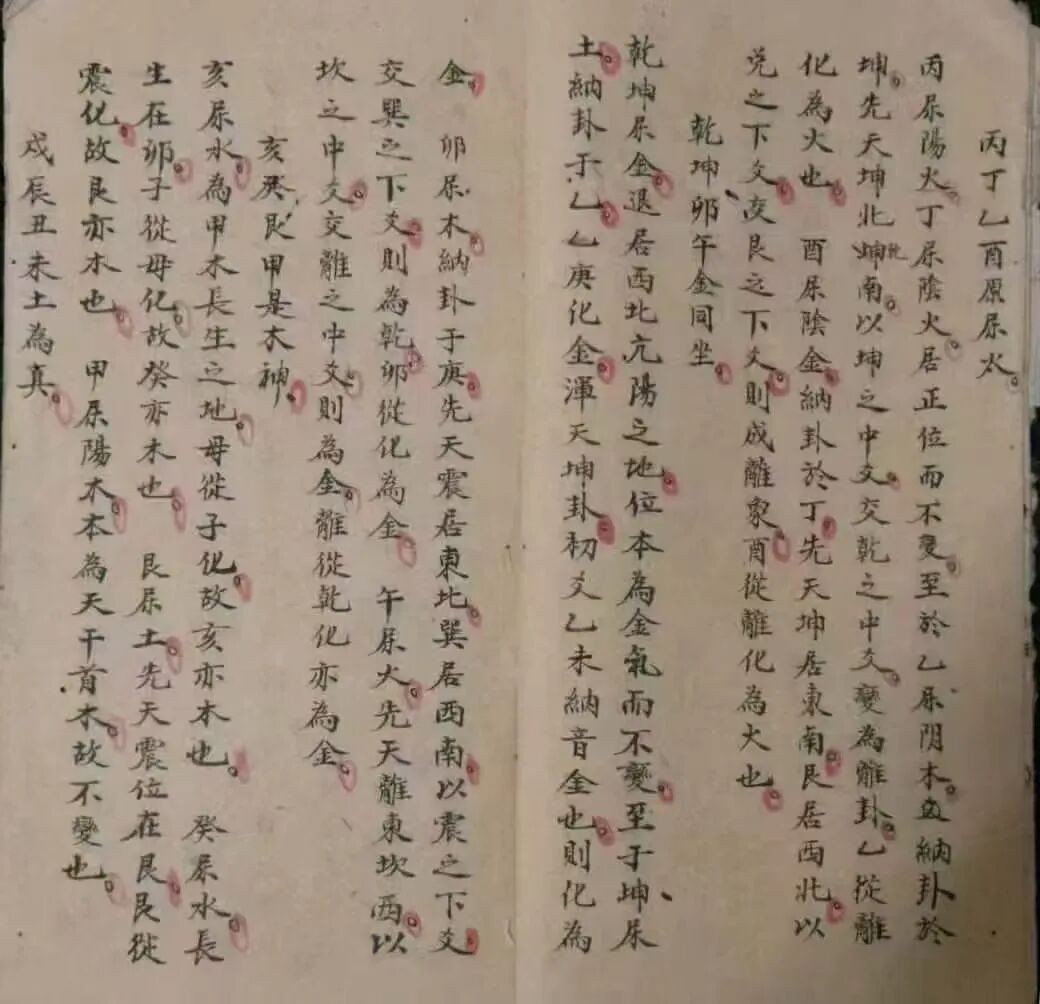 丙丁乙酉原属火。
丙属陽火。丁属陰火。居正位而不變。至於乙属阴木。盖納卦於
坤。先天坤北坤乾南。以坤之中爻。交乾之中爻。變為離卦。乙從離
化為火也。 酉属陰金。納卦於丁。先天坤居東南。艮居西北。以
兌之下爻。交艮之下爻。則成離象。酉從離化為火也。
乾坤卯午金同坐。
乾坤属金。退居西北亢陽之地。位本為金氣而不變。至于坤属
土。納卦于乙。乙庚化金。渾天坤卦。初爻乙未納音金也。則化為
金。 卯属木。納卦于庚。先天震居東北。巽居西南。以震之下爻。
交巽之下爻。則為乾。卯從化為金。 午属火。先天離東坎西。以
坎之中爻。交離之中爻。則為金。離從乾化亦為金。
亥癸艮甲是木神。
亥属水。為甲木長生之地。母從子化。故亥亦木也。 癸属水。長
生在卯。子從母化。故癸亦木也。 艮属土。先天震位在艮。艮從
震化。故艮亦木也。 甲属陽木。本為天干首木。故不變也。
戍辰丑未土為真。